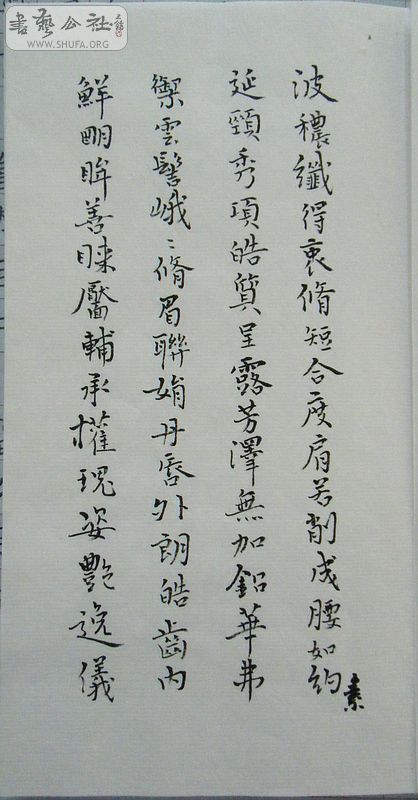 書藝公社
WWW.SHUFA.ORG
波穠纖得衷脩短合度肩若削成腰如約素
延頸秀項皓質呈露芳澤無加鉛華弗
禦雲髻峨〻脩眉聯娟丹唇外朗皓齒內
鮮明眸善睞靨輔承權瑰姿艷逸儀